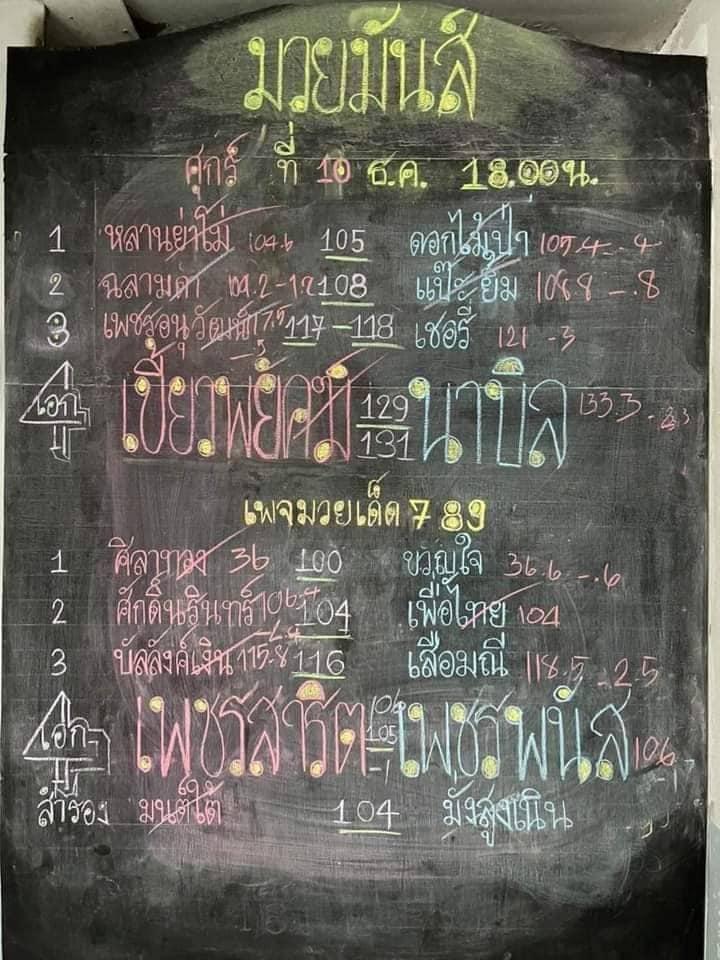 มวยมันส์
ศุกร์ ที่ 10 ธ.ค. 18.00น.
1 หลานย่าโม่ 104.6 105 ดอกไม้ป่า 105.4 -.4
2 ฉลามดำ 108 แป๊ะยิ้ม 108.8 -.8
3 เพชรอนุวัฒน์ 117.5 117-118 เชอรี่ 121 -3
เอก เขี้ยวพยัคฆ์ 129 131 นาบิล 133.3
เพจมวยเด็ด 789
1 ศิลาทอง 36 100 ขวัญใจ 36.6 -.6
2 ศักดิ์นรินทร์ 106.4 104 เพื่อไทย 104
3 บัลลังค์เงิน 115.8 116 เสือมณี 118.5 -2.5
เอก เพชรสาริต 106 105 -1 เพชรพนัส 106
สำรอง มนต์ใต้ 104 มั่งสูงเนิน